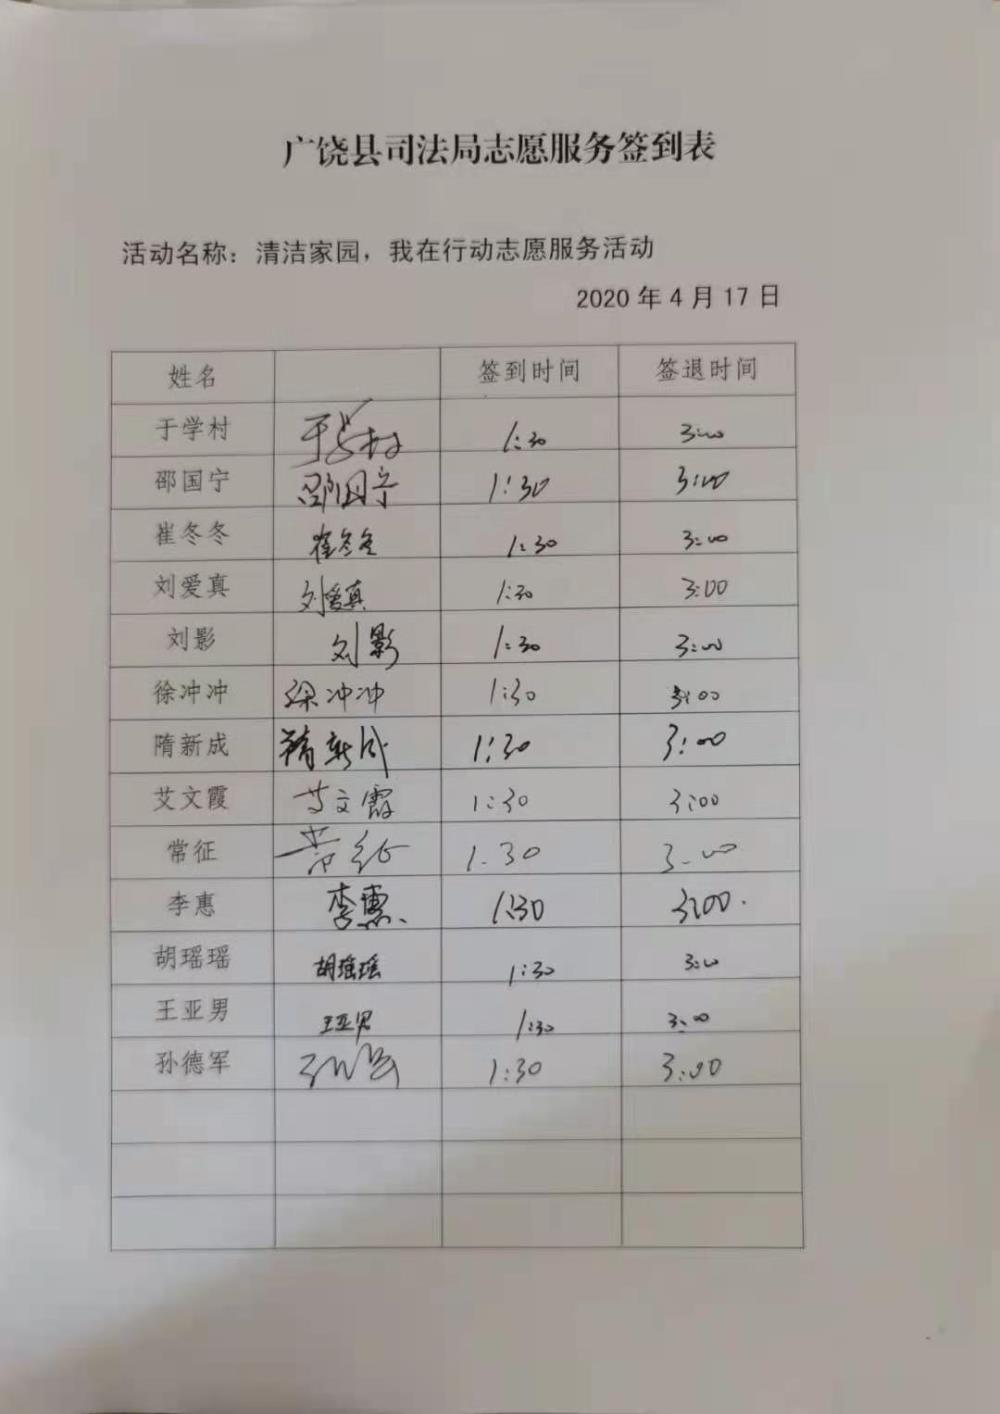 广饶县司法局志愿服务签到表
活动名称：清洁家园，我在行动志愿服务活动
2020年4月17日
姓名 签到时间 签退时间
于学村 于学村 1:30 3:00
邵国宁 邵国宁 1:30 3:00
崔冬冬 崔冬冬 1:30 3:00
刘爱真 刘爱真 1:30 3:00
刘影 刘影 1:30 3:00
徐冲冲 徐冲冲 1:30 3:00
隋新成 隋新成 1:30 3:00
艾文霞 艾文霞 1:30 3:00
常征 常征 1.30 3:00
李惠 李惠 1:30 3:00.
胡瑶瑶 胡瑶瑶 1:30 3:00
王亚男 王亚男 1:30 3:00
孙德军 孙德军 1:30 3:00